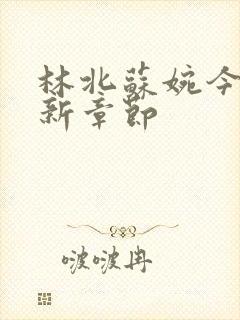 林北蘇婉今
新章節
啵啵冉